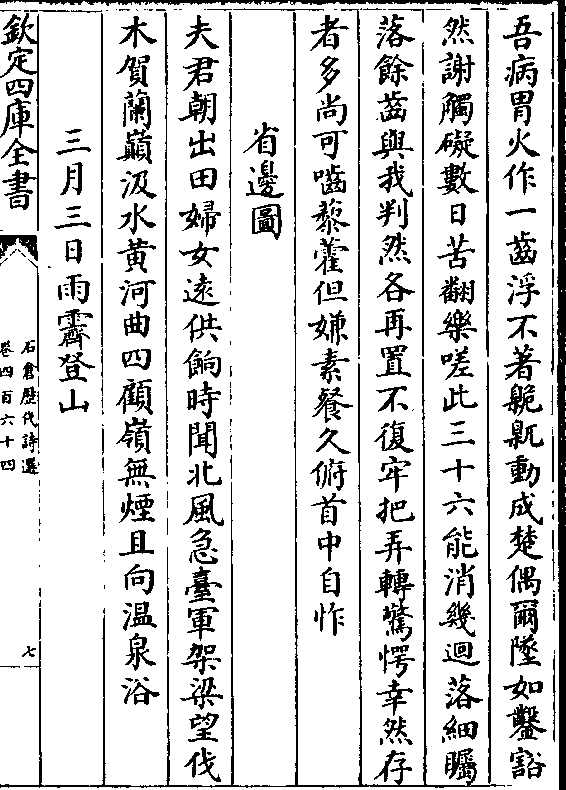 吾病胃火作一齒浮不著臲卼動成楚偶爾墜如鑿豁
然謝觸礙數日苦翻樂嗟此三十六能消幾迴落細矚
落餘齒與我判然各再置不復牢把弄轉驚愕幸然存
者多尚可嚙藜藿但嫌素餐久俯首中自怍
省邊圖
夫君朝出田婦女遠供餉時聞北風急臺軍架梁望伐
木賀蘭巔汲水黄河曲四顧嶺無煙且向温泉浴
三月三日雨霽登山
欽定四庫全書
石倉歴代詩選
卷四百六十四
七